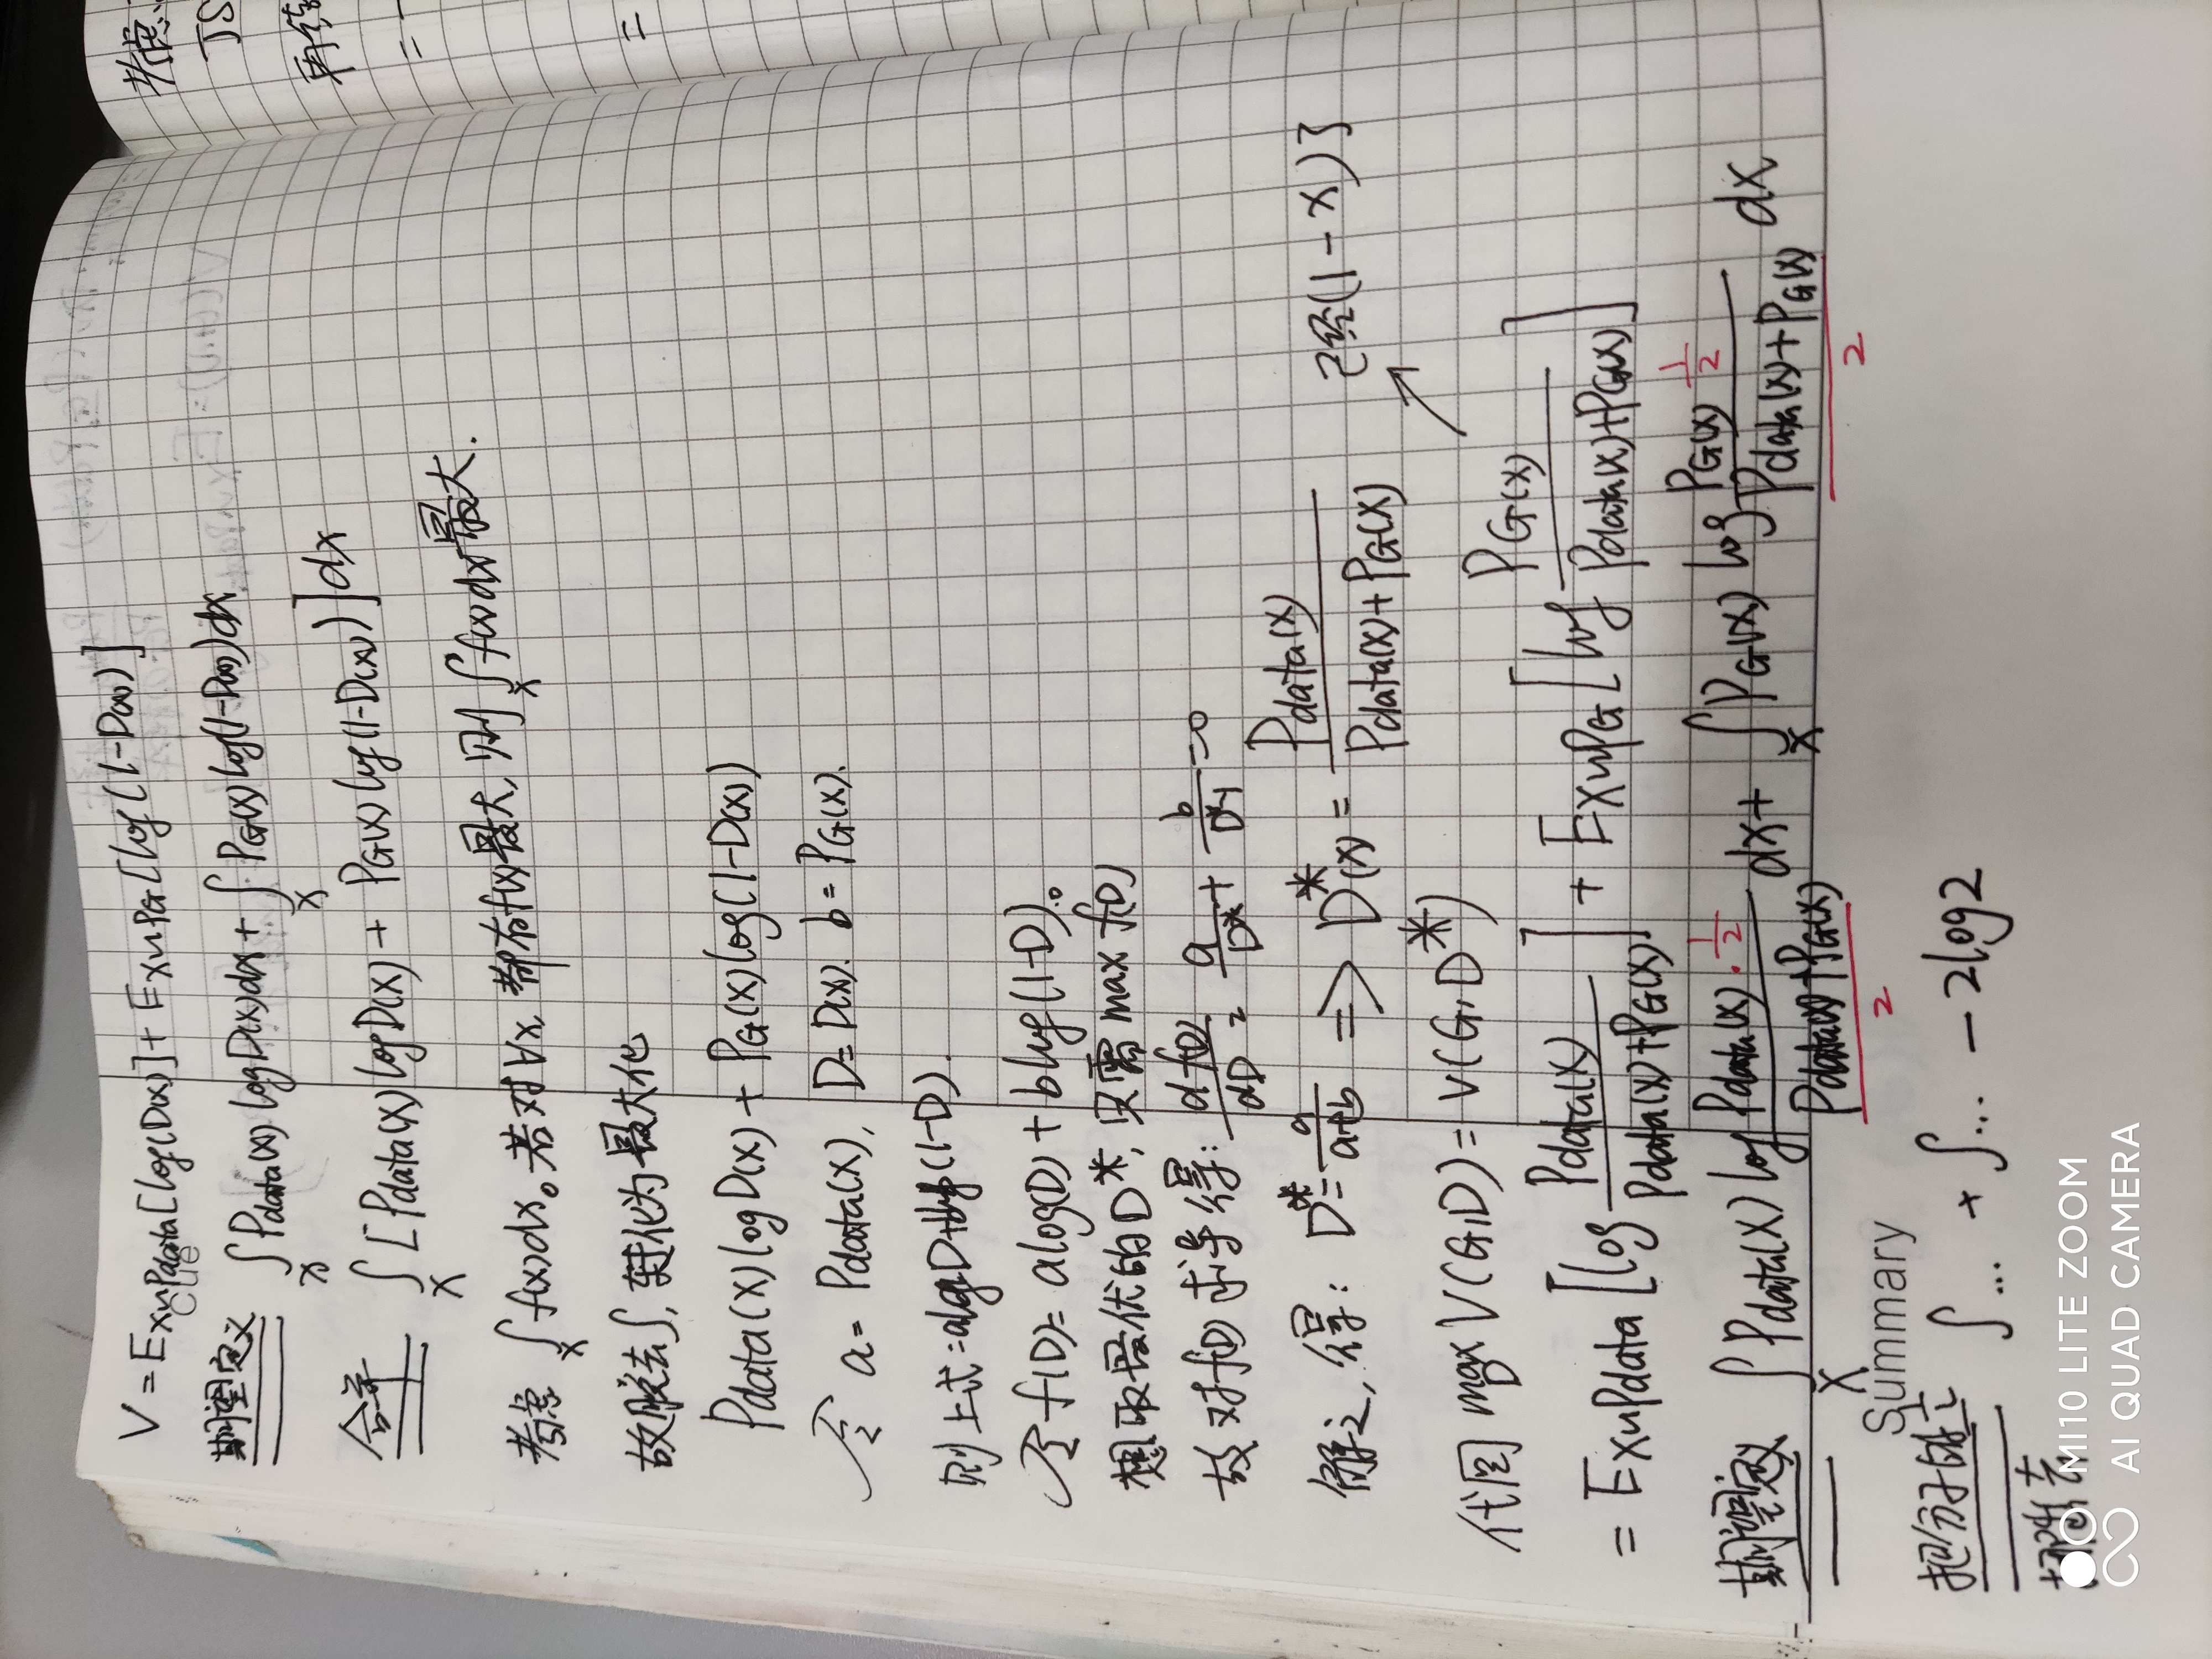 V = Ex~Pdata[log(D(x)] + Ex~PG[log(1-D(x))]
Cue
期望定义 ∫x Pdata(x) logD(x)dx + ∫x PG(x) log(1-D(x))dx
合并 ∫x [Pdata(x) logD(x) + PG(x) log(1-D(x))]dx
考虑 ∫x f(x)dx。若对∀x, 都有f(x)最大, 则∫x f(x)dx最大.
故脱去∫, 转化为最大化
Pdata(x) logD(x) + PG(x) log(1-D(x))
令 a = Pdata(x), D = D(x). b = PG(x).
则上式=alogD+blog(1-D).
令 f(D) = alog(D) + blog(1-D).
想取最优的D*, 只需 max f(D)
故对f(D)求导得: df(D)/dD = a/D* + b/D*-1 = 0
解之, 得: D* = a/a+b => D*(x) = Pdata(x)/Pdata(x)+PG(x)
已经(1-x)了
代回 max V(G,D) = V(G,D*)
= Ex~Pdata [log Pdata(x)/Pdata(x)+PG(x)] + Ex~PG [log PG(x)/Pdata(x)+PG(x)]
期望定义 ∫x Pdata(x) log Pdata(x)·1/2 / Pdata(x)+PG(x)/2 dx + ∫x PG(x) log PG(x) 1/2 / Pdata(x)+PG(x)/2 dx
Summary
把分子的1/2 ∫... + ∫... - 2log2
考虑
JS
再
=
=
MI 10 LITE ZOOM
AI QUAD CAMERA